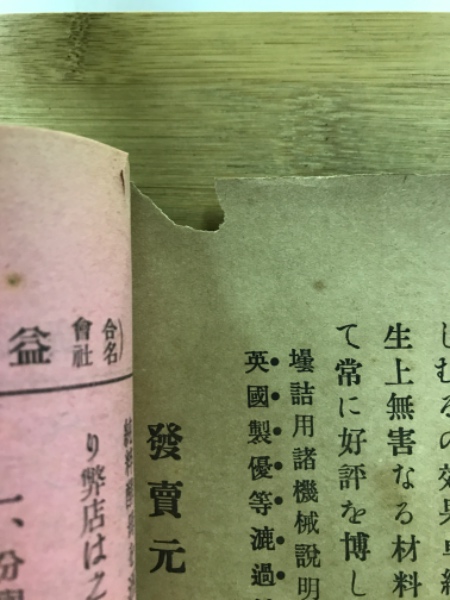 しむるの効果
生上無害なる材料
て常に好評を博し
壜詰用諸機械説明
英國製優等漉過
發賣元
合名
會社
益
り弊店は
一、分